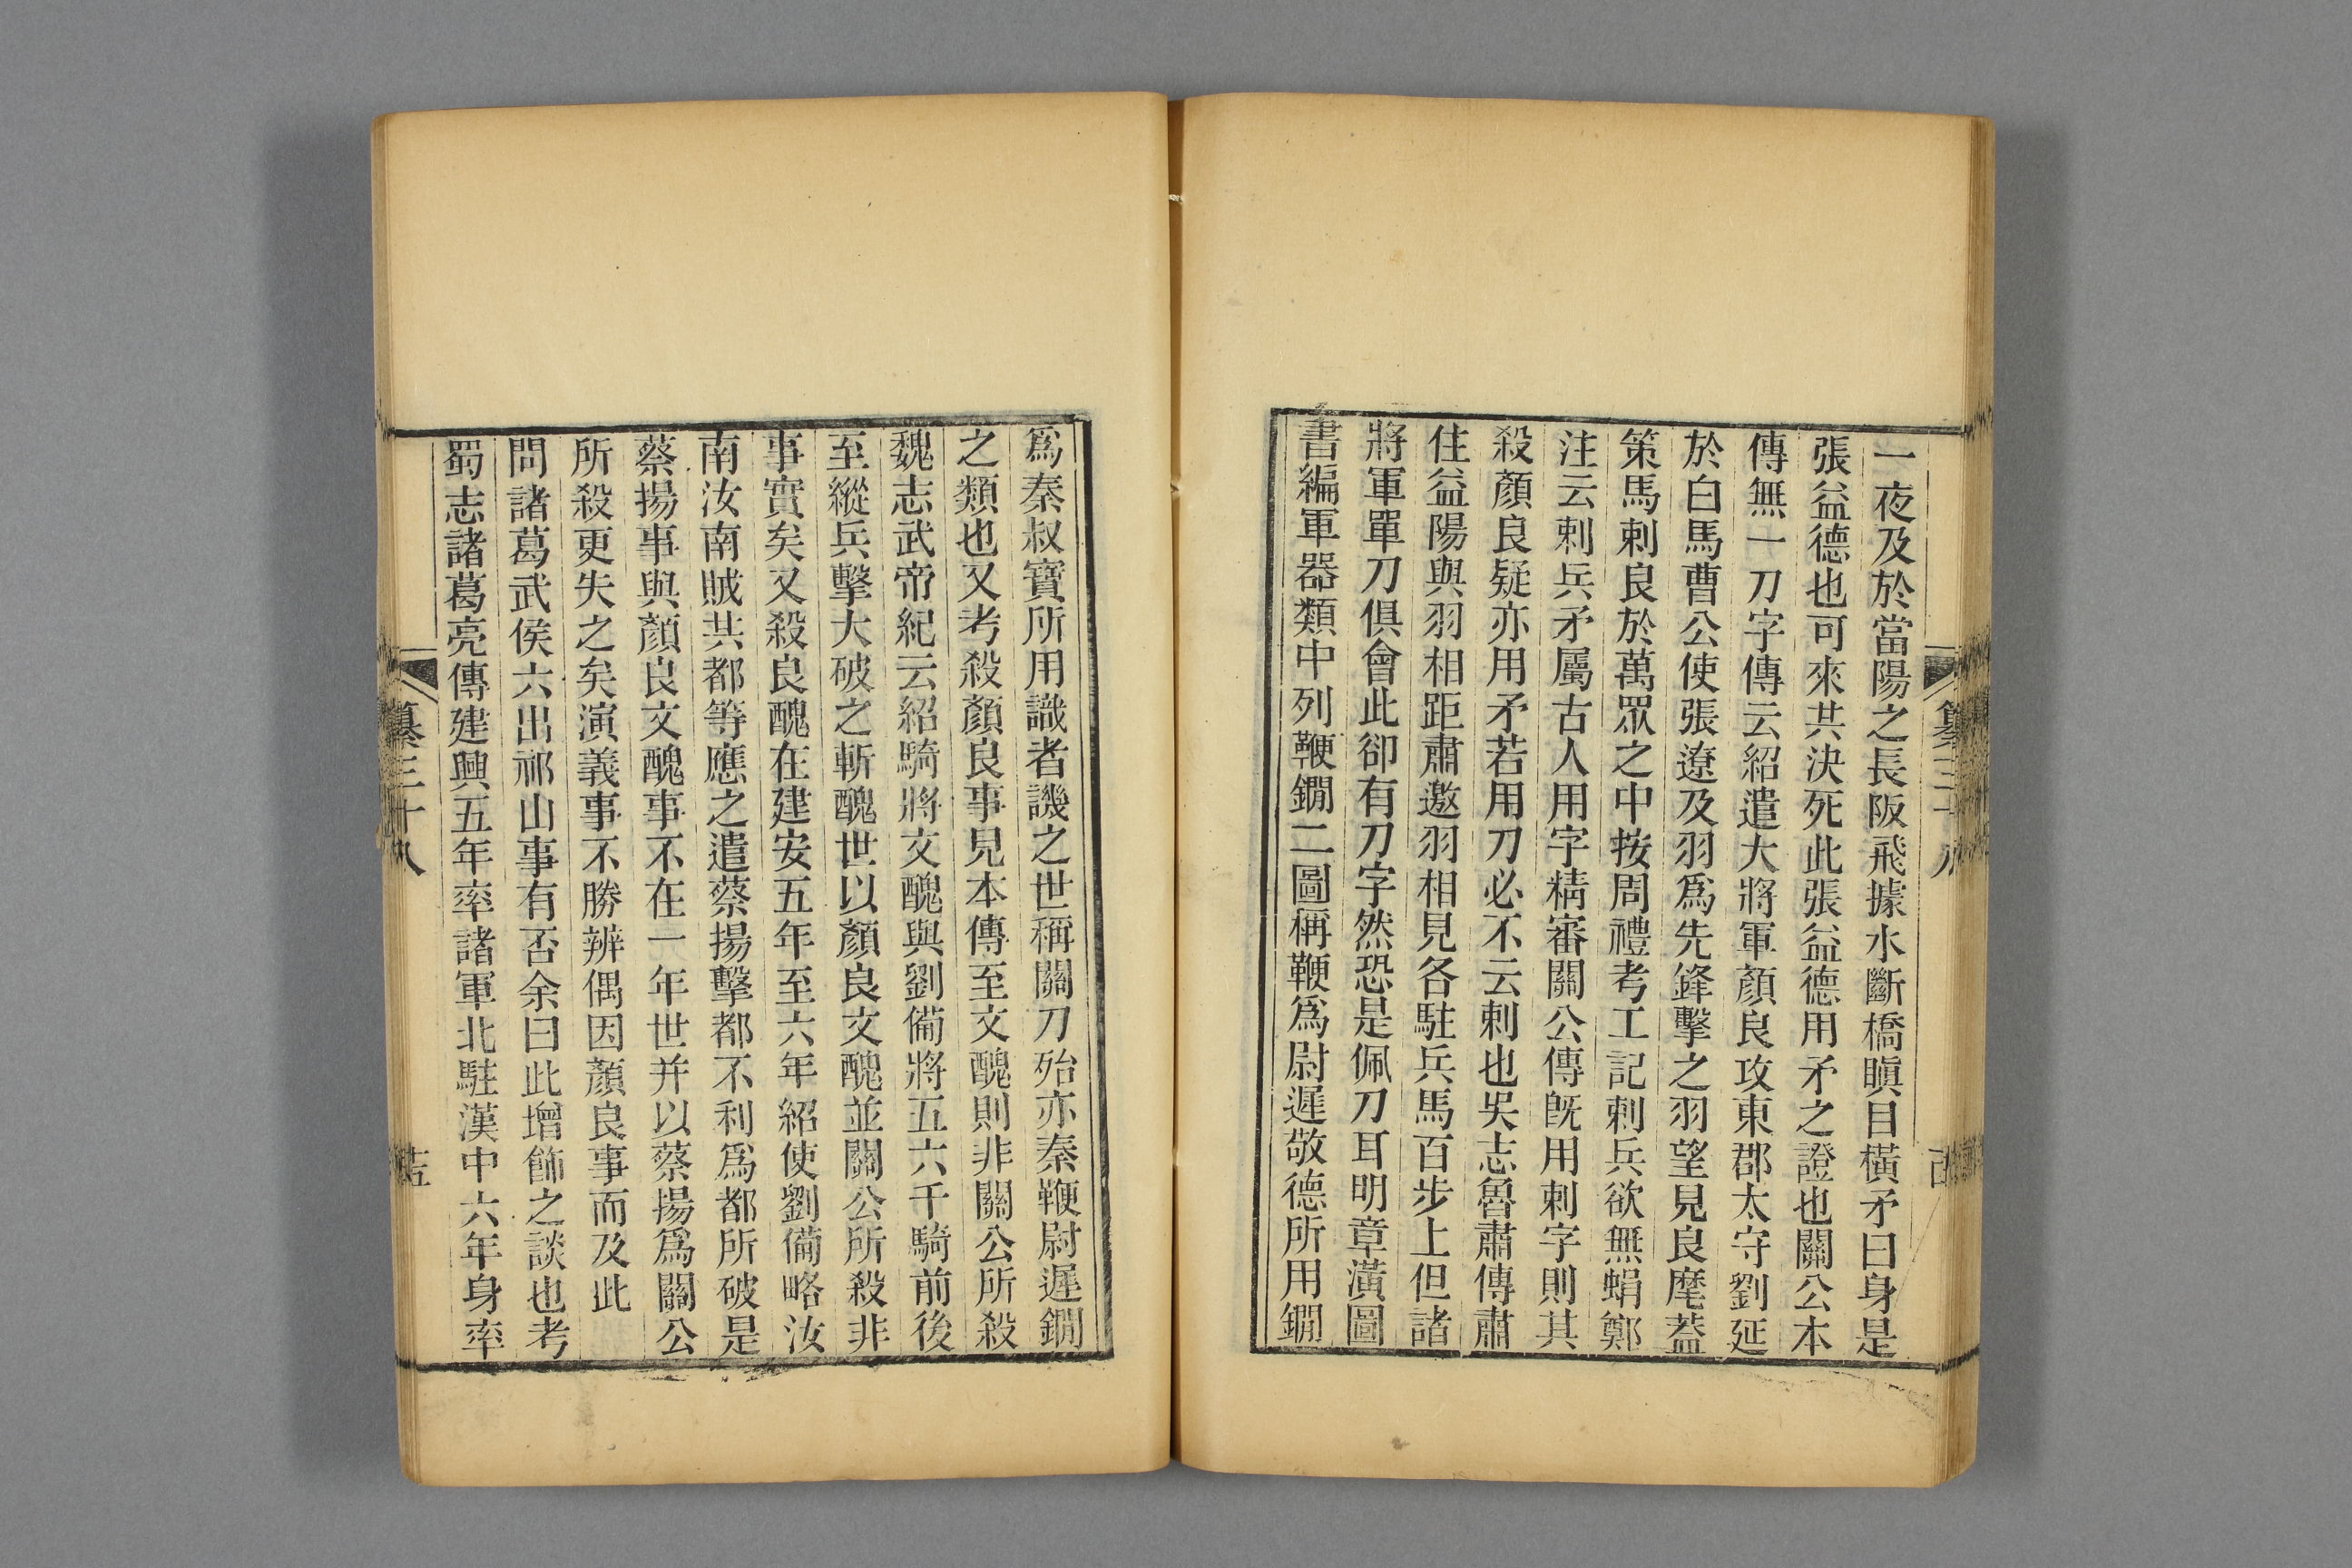 一夜及於當陽之長阪飛據水斷橋瞋目橫矛曰身是
張益德也可來共決死此張益德用矛之證也關公本
傳無一刀字傳云紹遣大將軍顏良攻東郡太守劉延
於白馬曹公使張遼及羽爲先鋒擊之羽望見良麾蓋
策馬刺良於萬眾之中按周禮考工記刺兵欲無蜎鄭
注云刺兵矛屬古人用字精審關公傳旣用刺字則其
殺顏良疑亦用矛若用刀必不云刺也吳志魯肅傳肅
住益陽與羽相距肅邀羽相見各駐兵馬百步上但諸
將軍單刀俱會此卻有刀字然恐是佩刀耳明章潢圖
書編軍器類中列鞭鐧二圖稱鞭爲尉遲敬德所用鐧
爲秦叔寶所用識者譏之世稱關刀殆亦秦鞭尉遲鐧
之類也又考殺顏良事見本傳至文醜則非關公所殺
魏志武帝紀云紹騎將文醜與劉備將五六千騎前後
至縱兵擊大破之斬醜世以顏良文醜並關公所殺非
事實矣又殺良醜在建安五年至六年紹使劉備略汝
南汝南賊共都等應之遣蔡揚擊都不利爲都所破是
蔡揚事與顏良文醜事不在一年世并以蔡揚爲關公
所殺更失之矣演義事不勝辨偶因顏良事而及此
問諸葛武侯六出祁山事有否余曰此增飾之談也考
蜀志諸葛亮傳建興五年率諸軍北駐漢中六年身率
纂三十八